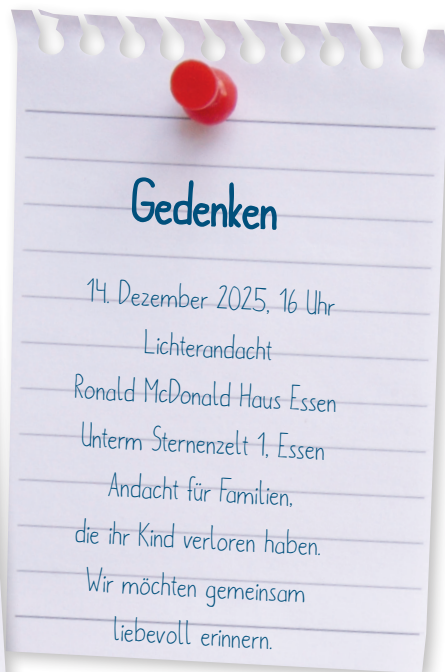 Gedenken
14. Dezember 2025, 16 Uhr
Lichterandacht
Ronald McDonald Haus Essen
Unterm Sternenzelt 1, Essen
Andacht für Familien,
die ihr Kind verloren haben.
Wir möchten gemeinsam
liebevoll erinnern.